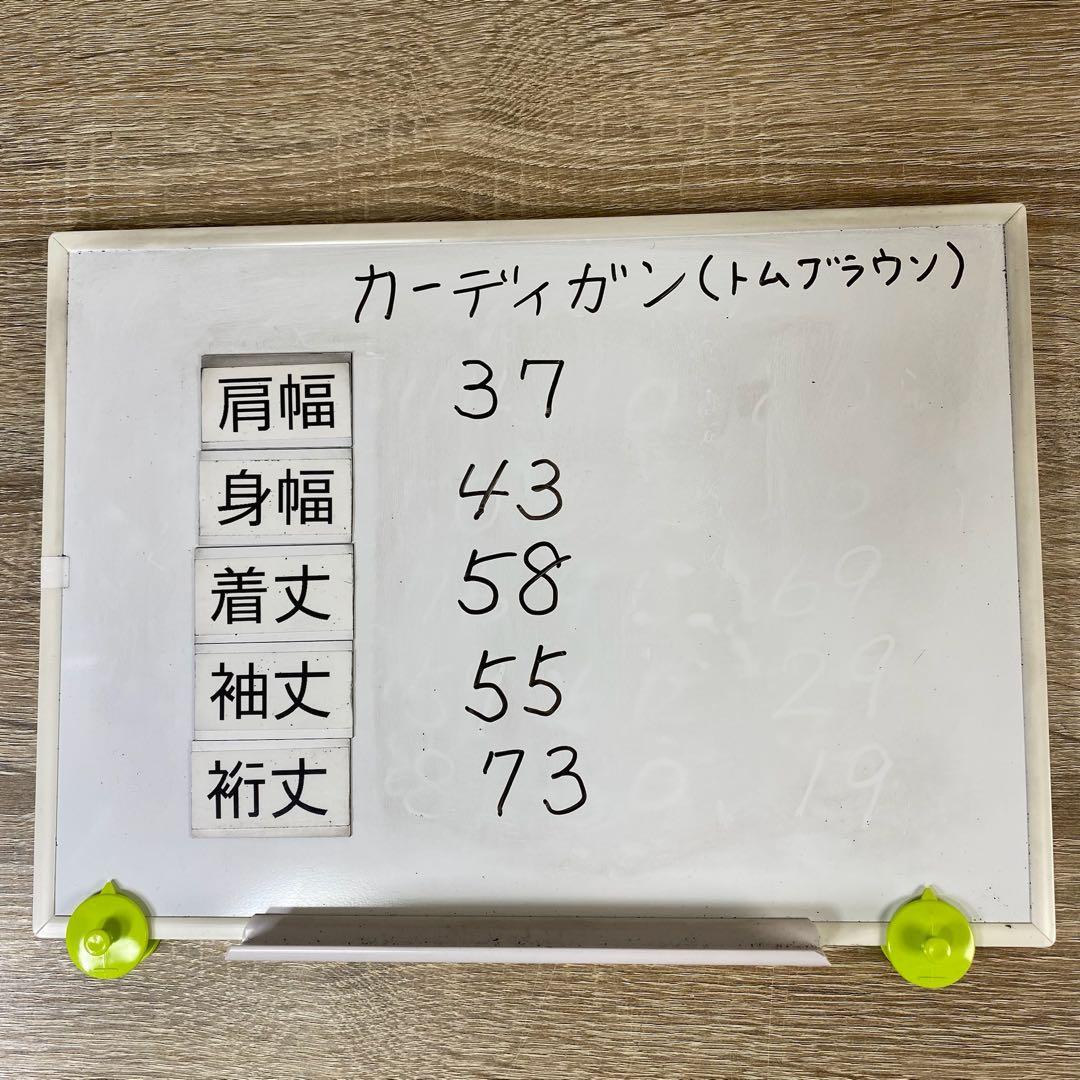 カーディガン(トムブラウン)
肩幅 37
身幅 43
着丈 58
袖丈 55
裄丈 73